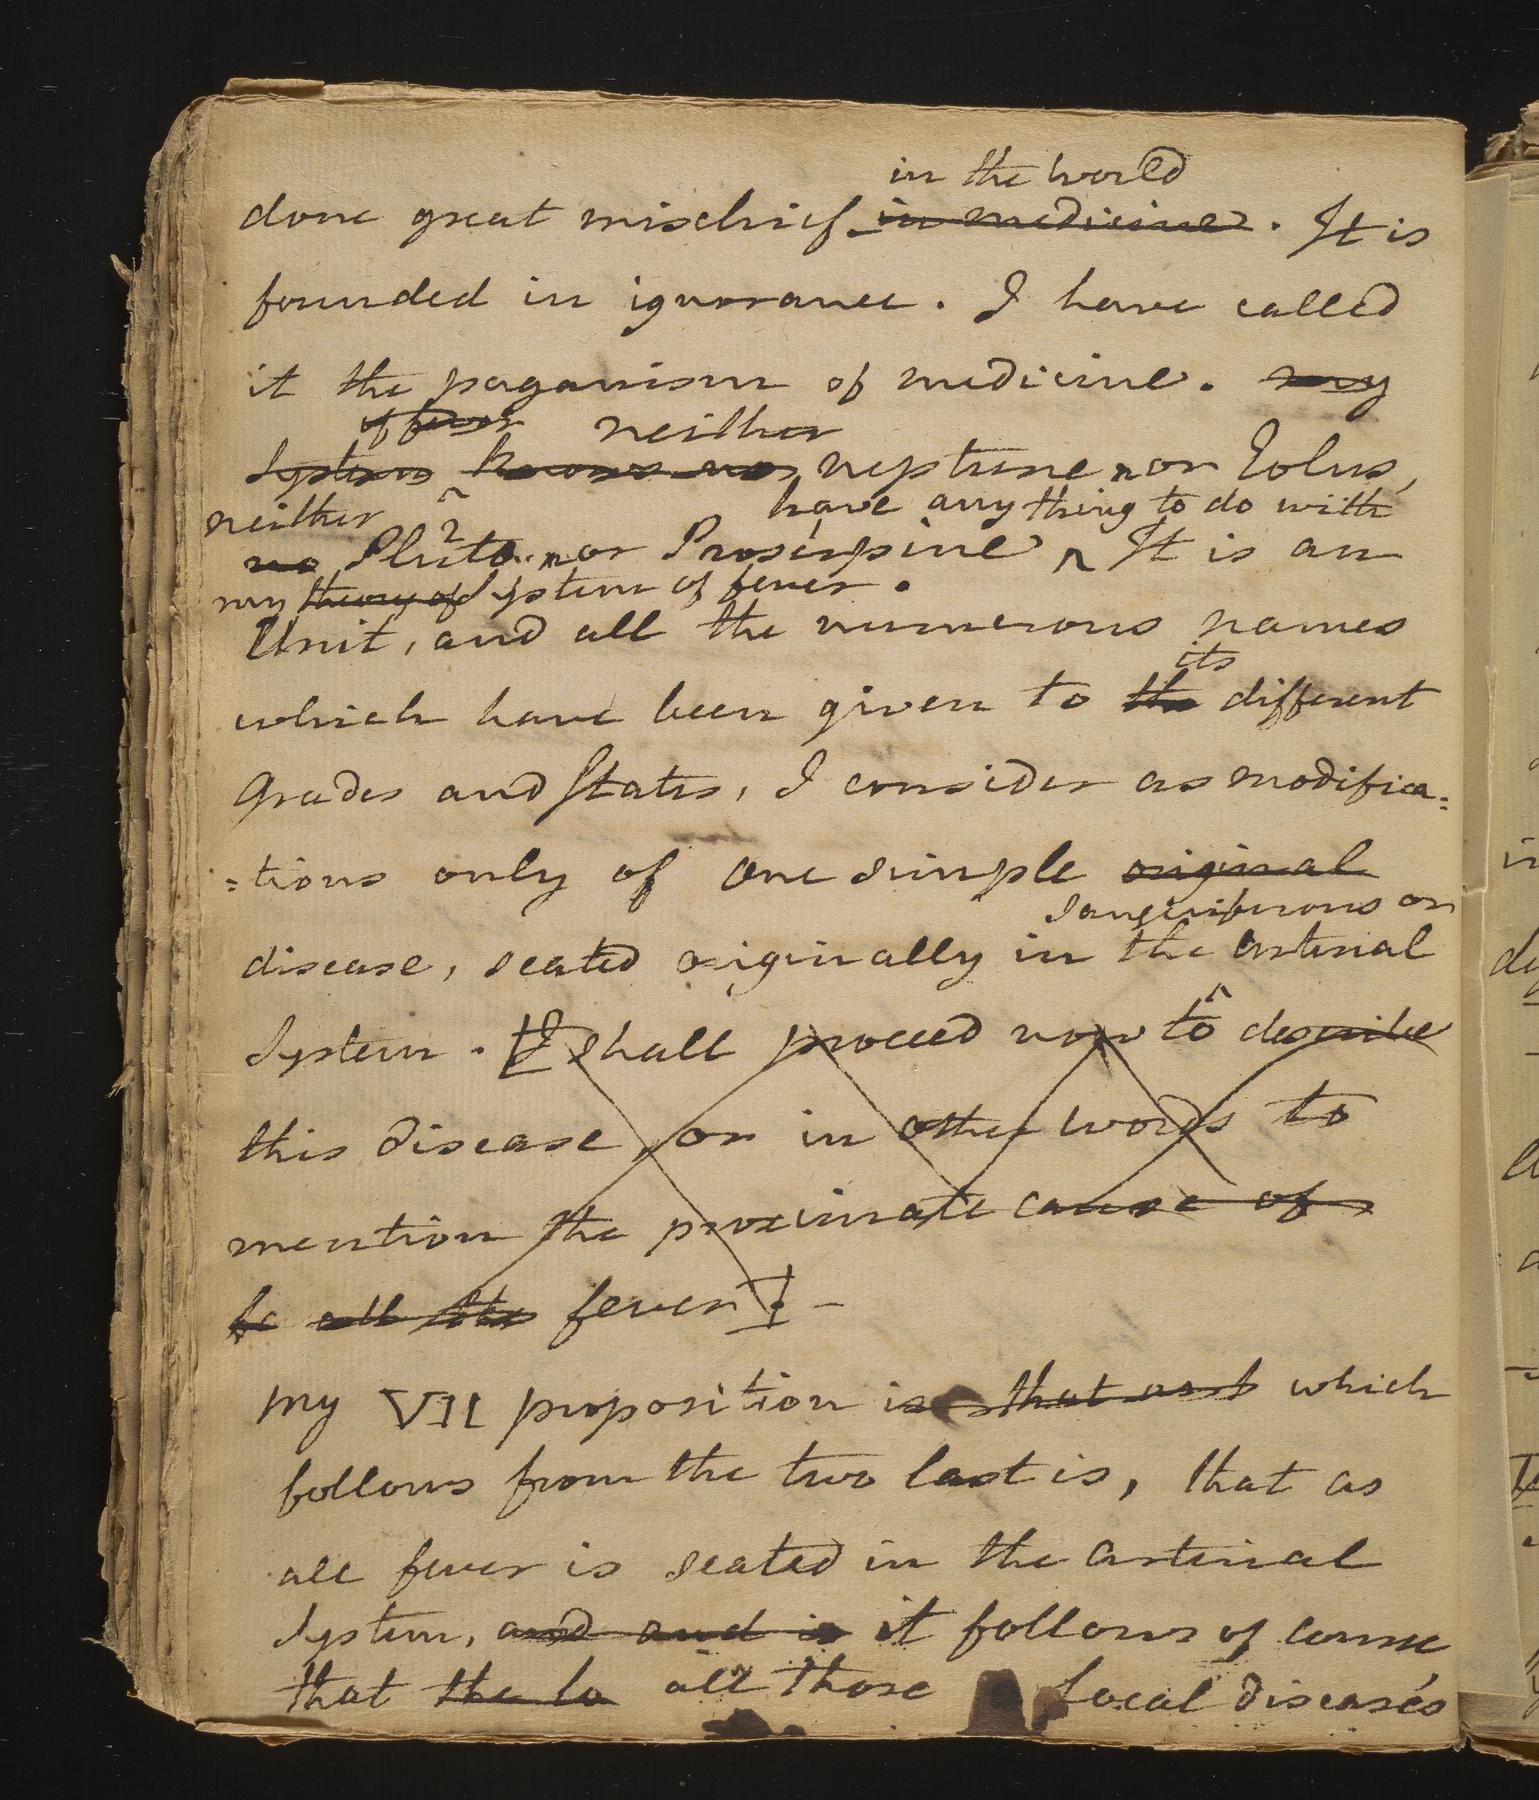 in the world
done great mischief in medicine. It is
founded in ignorance. I have called
it the paganism of medicine. my
of fever neither
System knows no neptune nor Eolus,
neither have any thing to do with
no Pluto nor Proserpine ^ It is an
my theory of System of fever.
Unit, and all the numerous names
its
which have been given to the different
Grades and States, I consider as modifica=
=tions only of one simple original
sanguiferous or
disease, seated originally in the arterial
System. [I shall proceed now to describe
this disease, or in other words to
mention the proximate cause of
fe all the fever] –
my VII proposition is that and which
follows from the two last is, that as
all fever is seated in the arterial
System, and and is it follows of course
that the lo all those local diseases